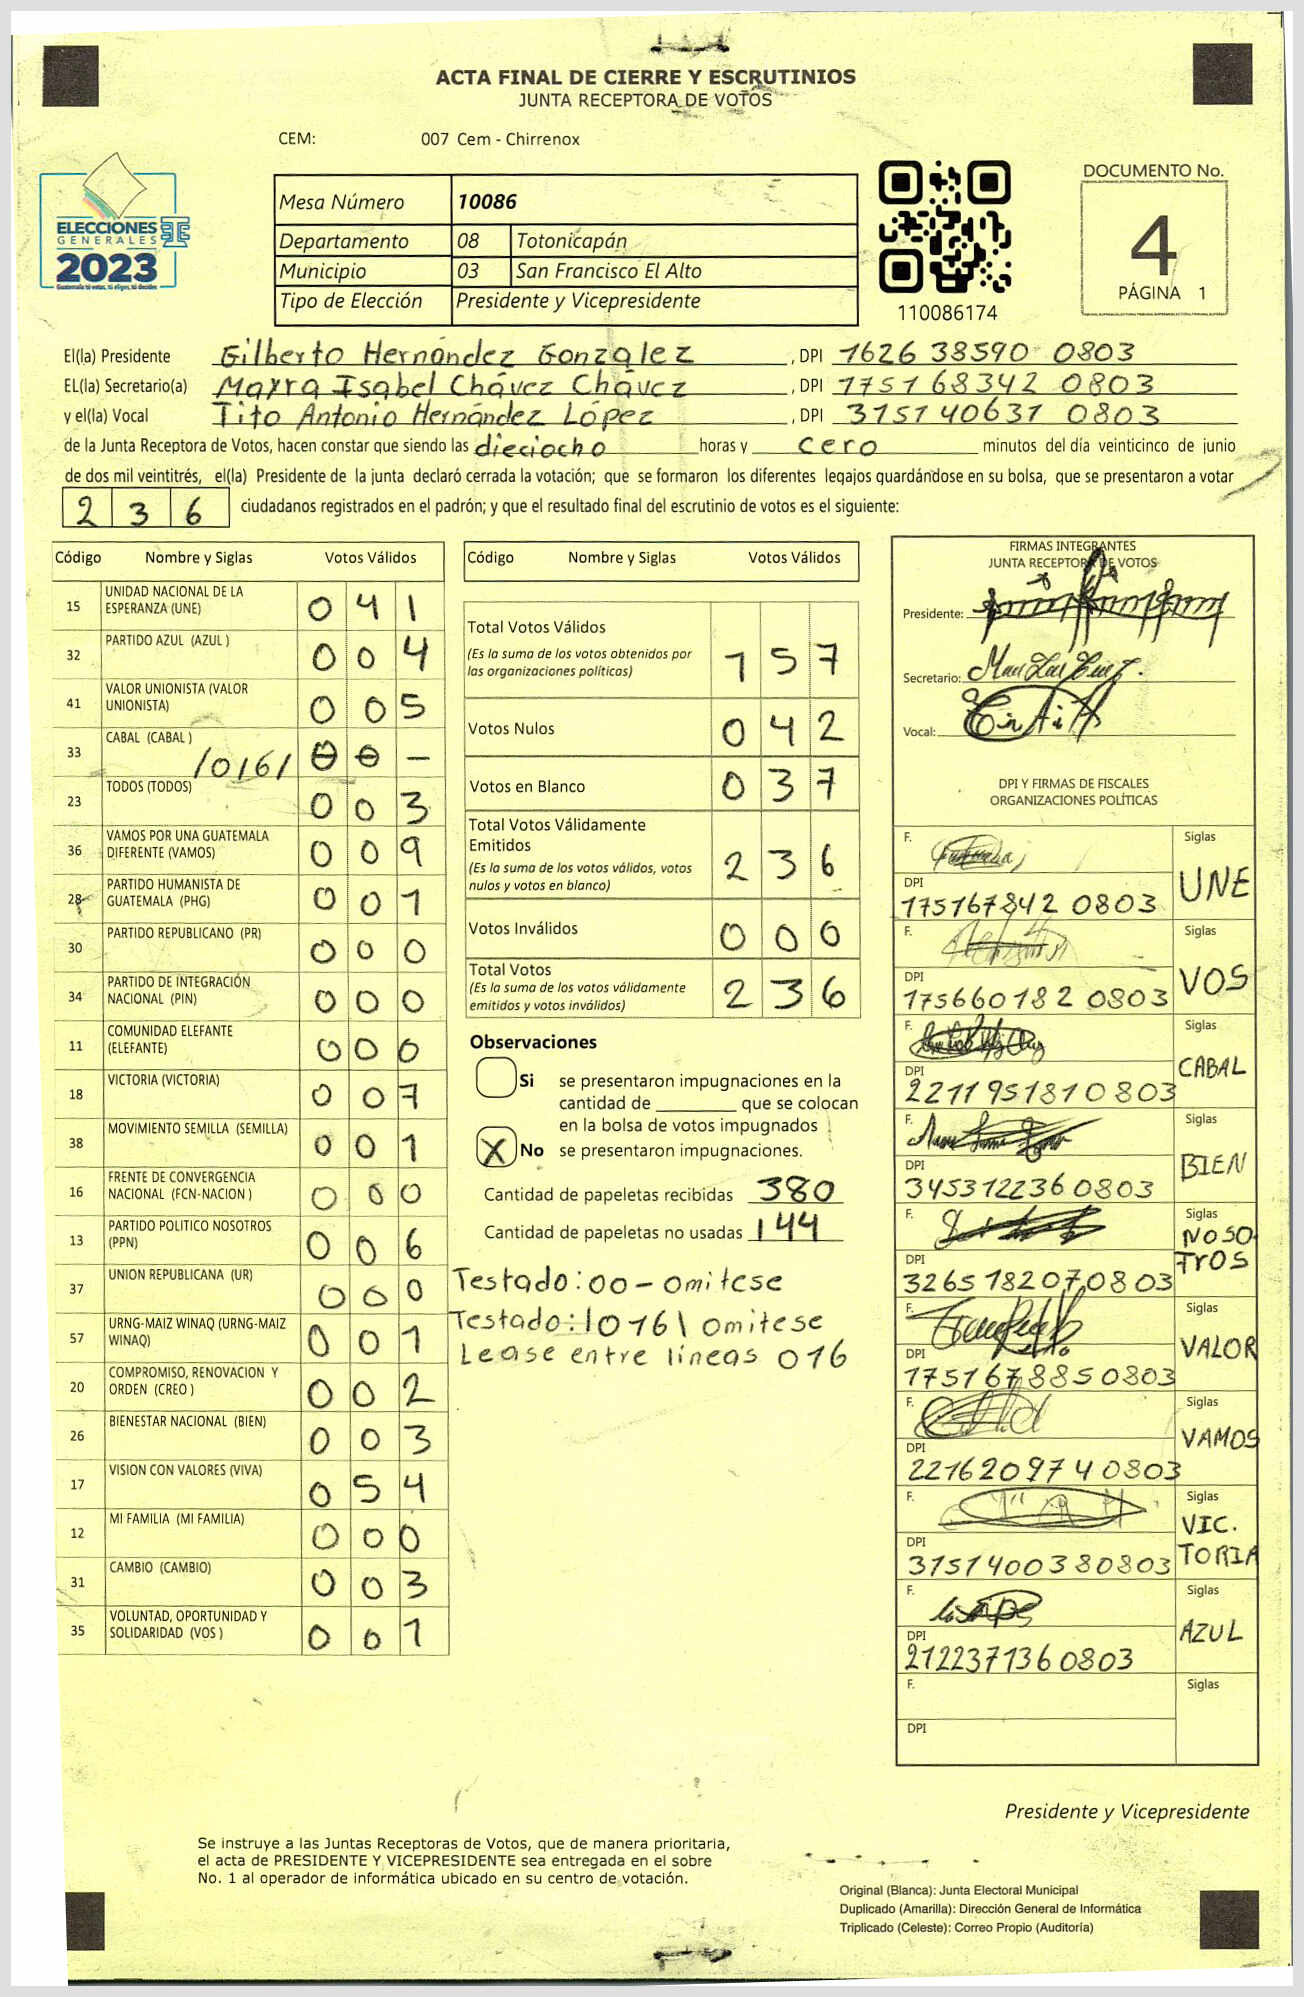 ACTA FINAL DE CIERRE Y ESCRUTINIOS
JUNTA RECEPTORA DE VOTOS
CEM: 007 Cem - Chirrenox
ELECCIONES
GENERALES
2023
Guatemala tú votas, tú eliges, tú decides
Mesa Número 10086
Departamento 08 Totonicapán
Municipio 03 San Francisco El Alto
Tipo de Elección Presidente y Vicepresidente
110086174
DOCUMENTO No.
4
PÁGINA 1
El(la) Presidente Gilberto Hernández Gonzalez, DPI 1626 38590 0803
EL(la) Secretario(a) Mayra Isabel Chávez Chávez, DPI 1751 68342 0803
y el(la) Vocal Tito Antonio Hernández López, DPI 3151 40631 0803
de la Junta Receptora de Votos, hacen constar que siendo las dieciocho horas y cero minutos del día veinticinco de junio
de dos mil veintitrés, el(la) Presidente de la junta declaró cerrada la votación; que se formaron los diferentes legajos guardándose en su bolsa, que se presentaron a votar
2 3 6 ciudadanos registrados en el padrón; y que el resultado final del escrutinio de votos es el siguiente:
Código Nombre y Siglas Votos Válidos
15 UNIDAD NACIONAL DE LA ESPERANZA (UNE) 0 4 1
32 PARTIDO AZUL (AZUL ) 0 0 4
41 VALOR UNIONISTA (VALOR UNIONISTA) 0 0 5
33 CABAL (CABAL ) /0161 0 0 -
23 TODOS (TODOS) 0 0 3
36 VAMOS POR UNA GUATEMALA DIFERENTE (VAMOS) 0 0 9
28 PARTIDO HUMANISTA DE GUATEMALA (PHG) 0 0 1
30 PARTIDO REPUBLICANO (PR) 0 0 0
34 PARTIDO DE INTEGRACIÓN NACIONAL (PIN) 0 0 0
11 COMUNIDAD ELEFANTE (ELEFANTE) 0 0 0
18 VICTORIA (VICTORIA) 0 0 7
38 MOVIMIENTO SEMILLA (SEMILLA) 0 0 1
16 FRENTE DE CONVERGENCIA NACIONAL (FCN-NACION ) 0 0 0
13 PARTIDO POLITICO NOSOTROS (PPN) 0 0 6
37 UNION REPUBLICANA (UR) 0 0 0
57 URNG-MAIZ WINAQ (URNG-MAIZ WINAQ) 0 0 1
20 COMPROMISO, RENOVACION Y ORDEN (CREO ) 0 0 2
26 BIENESTAR NACIONAL (BIEN) 0 0 3
17 VISION CON VALORES (VIVA) 0 5 4
12 MI FAMILIA (MI FAMILIA) 0 0 0
31 CAMBIO (CAMBIO) 0 0 3
35 VOLUNTAD, OPORTUNIDAD Y SOLIDARIDAD (VOS ) 0 0 1
Código Nombre y Siglas Votos Válidos
Total Votos Válidos 1 5 7
(Es la suma de los votos obtenidos por
las organizaciones políticas)
Votos Nulos 0 4 2
Votos en Blanco 0 3 7
Total Votos Válidamente
Emitidos 2 3 6
(Es la suma de los votos válidos, votos
nulos y votos en blanco)
Votos Inválidos 0 0 0
Total Votos 2 3 6
(Es la suma de los votos válidamente
emitidos y votos inválidos)
Observaciones
Si se presentaron impugnaciones en la
cantidad de ________ que se colocan
en la bolsa de votos impugnados
X No se presentaron impugnaciones.
Cantidad de papeletas recibidas 380
Cantidad de papeletas no usadas 144
Testado: 00 - omitese
Testado: |0161 omitese
Lease entre líneas 016
FIRMAS INTEGRANTES
JUNTA RECEPTORA DE VOTOS
Presidente:
Secretario:
Vocal:
DPI Y FIRMAS DE FISCALES
ORGANIZACIONES POLÍTICAS
F. Siglas
DPI UNE
175167842 0803
F. Siglas
DPI VOS
175660182 0803
F. Siglas
DPI CABAL
2211951810803
F. Siglas
DPI BIEN
3453122360803
F. Siglas
DPI NOSO
TROS
3265182070803
F. Siglas
DPI VALOR
1751678850803
F. Siglas
DPI VAMOS
2216209740803
F. Siglas
VIC.
DPI TORIA
3151400380803
F. Siglas
DPI AZUL
2122371360803
F. Siglas
DPI
Presidente y Vicepresidente
Se instruye a las Juntas Receptoras de Votos, que de manera prioritaria,
el acta de PRESIDENTE Y VICEPRESIDENTE sea entregada en el sobre
No. 1 al operador de informática ubicado en su centro de votación.
Original (Blanca): Junta Electoral Municipal
Duplicado (Amarilla): Dirección General de Informática
Triplicado (Celeste): Correo Propio (Auditoría)